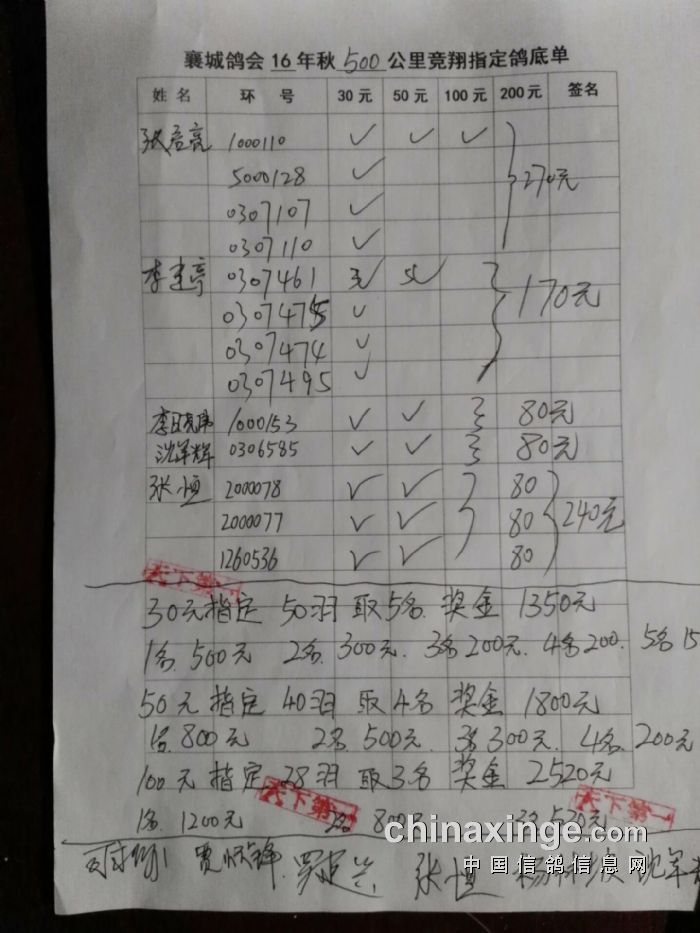 襄城鸽会 16 年秋 500 公里竞翔指定鸽底单
姓 名 环 号 30 元 50 元 100 元 200 元 签名
张 亮 1000110 ✓ ✓ ✓
5000128 ✓ 270元
0307107 ✓
0307110 ✓
李建亭 0307461 ✓ ✓
0307475 ✓ 170元
0307474 ✓
0307495 ✓
李 1000153 ✓ ✓ 80元
沈军辉 0306585 ✓ ✓ 80元
张恒 2000078 ✓ ✓ 80
2000077 ✓ ✓ 80 240元
1260536 ✓ ✓ 80
天下第一
30元指定 50羽 取5名 奖金 1350元
1名.500元 2名.300元. 3名200元. 4名200. 5名15
50元指定 40羽 取4名 奖金 1800元
1名.800元 2名500元. 3名300元. 4名.200元
100元指定 28羽 取3名 奖金 2520元
天下第一 天下第一
1名.1200元 2名 800 3名520元
chinaxinge.com
张恒 沈军
中国信鸽信息网